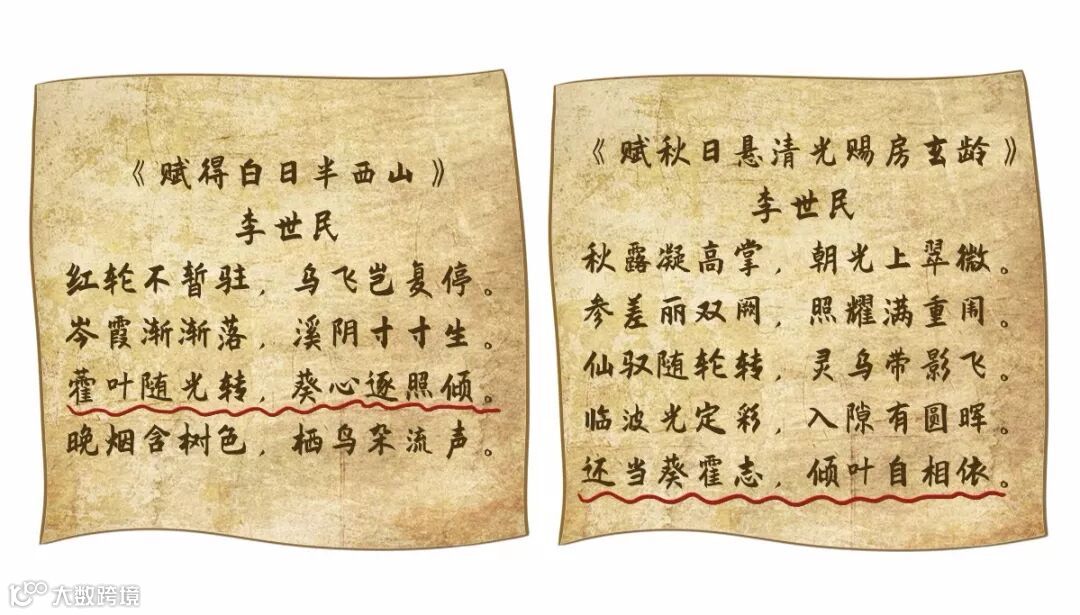 《赋得白日半西山》
李世民
红轮不暂驻，乌飞岂复停。
岑霞渐渐落，溪阴寸寸生。
藿叶随光转，葵心逐照倾。
晚烟含树色，栖鸟杂流声。
《赋秋日悬清光赐房玄龄》
李世民
秋露凝高掌，朝光上翠微。
参差丽双阙，照耀满重闱。
仙驭随轮转，灵乌带影飞。
临波光定彩，入隙有圆晖。
还当葵霍志，倾叶自相依。
大数跨境